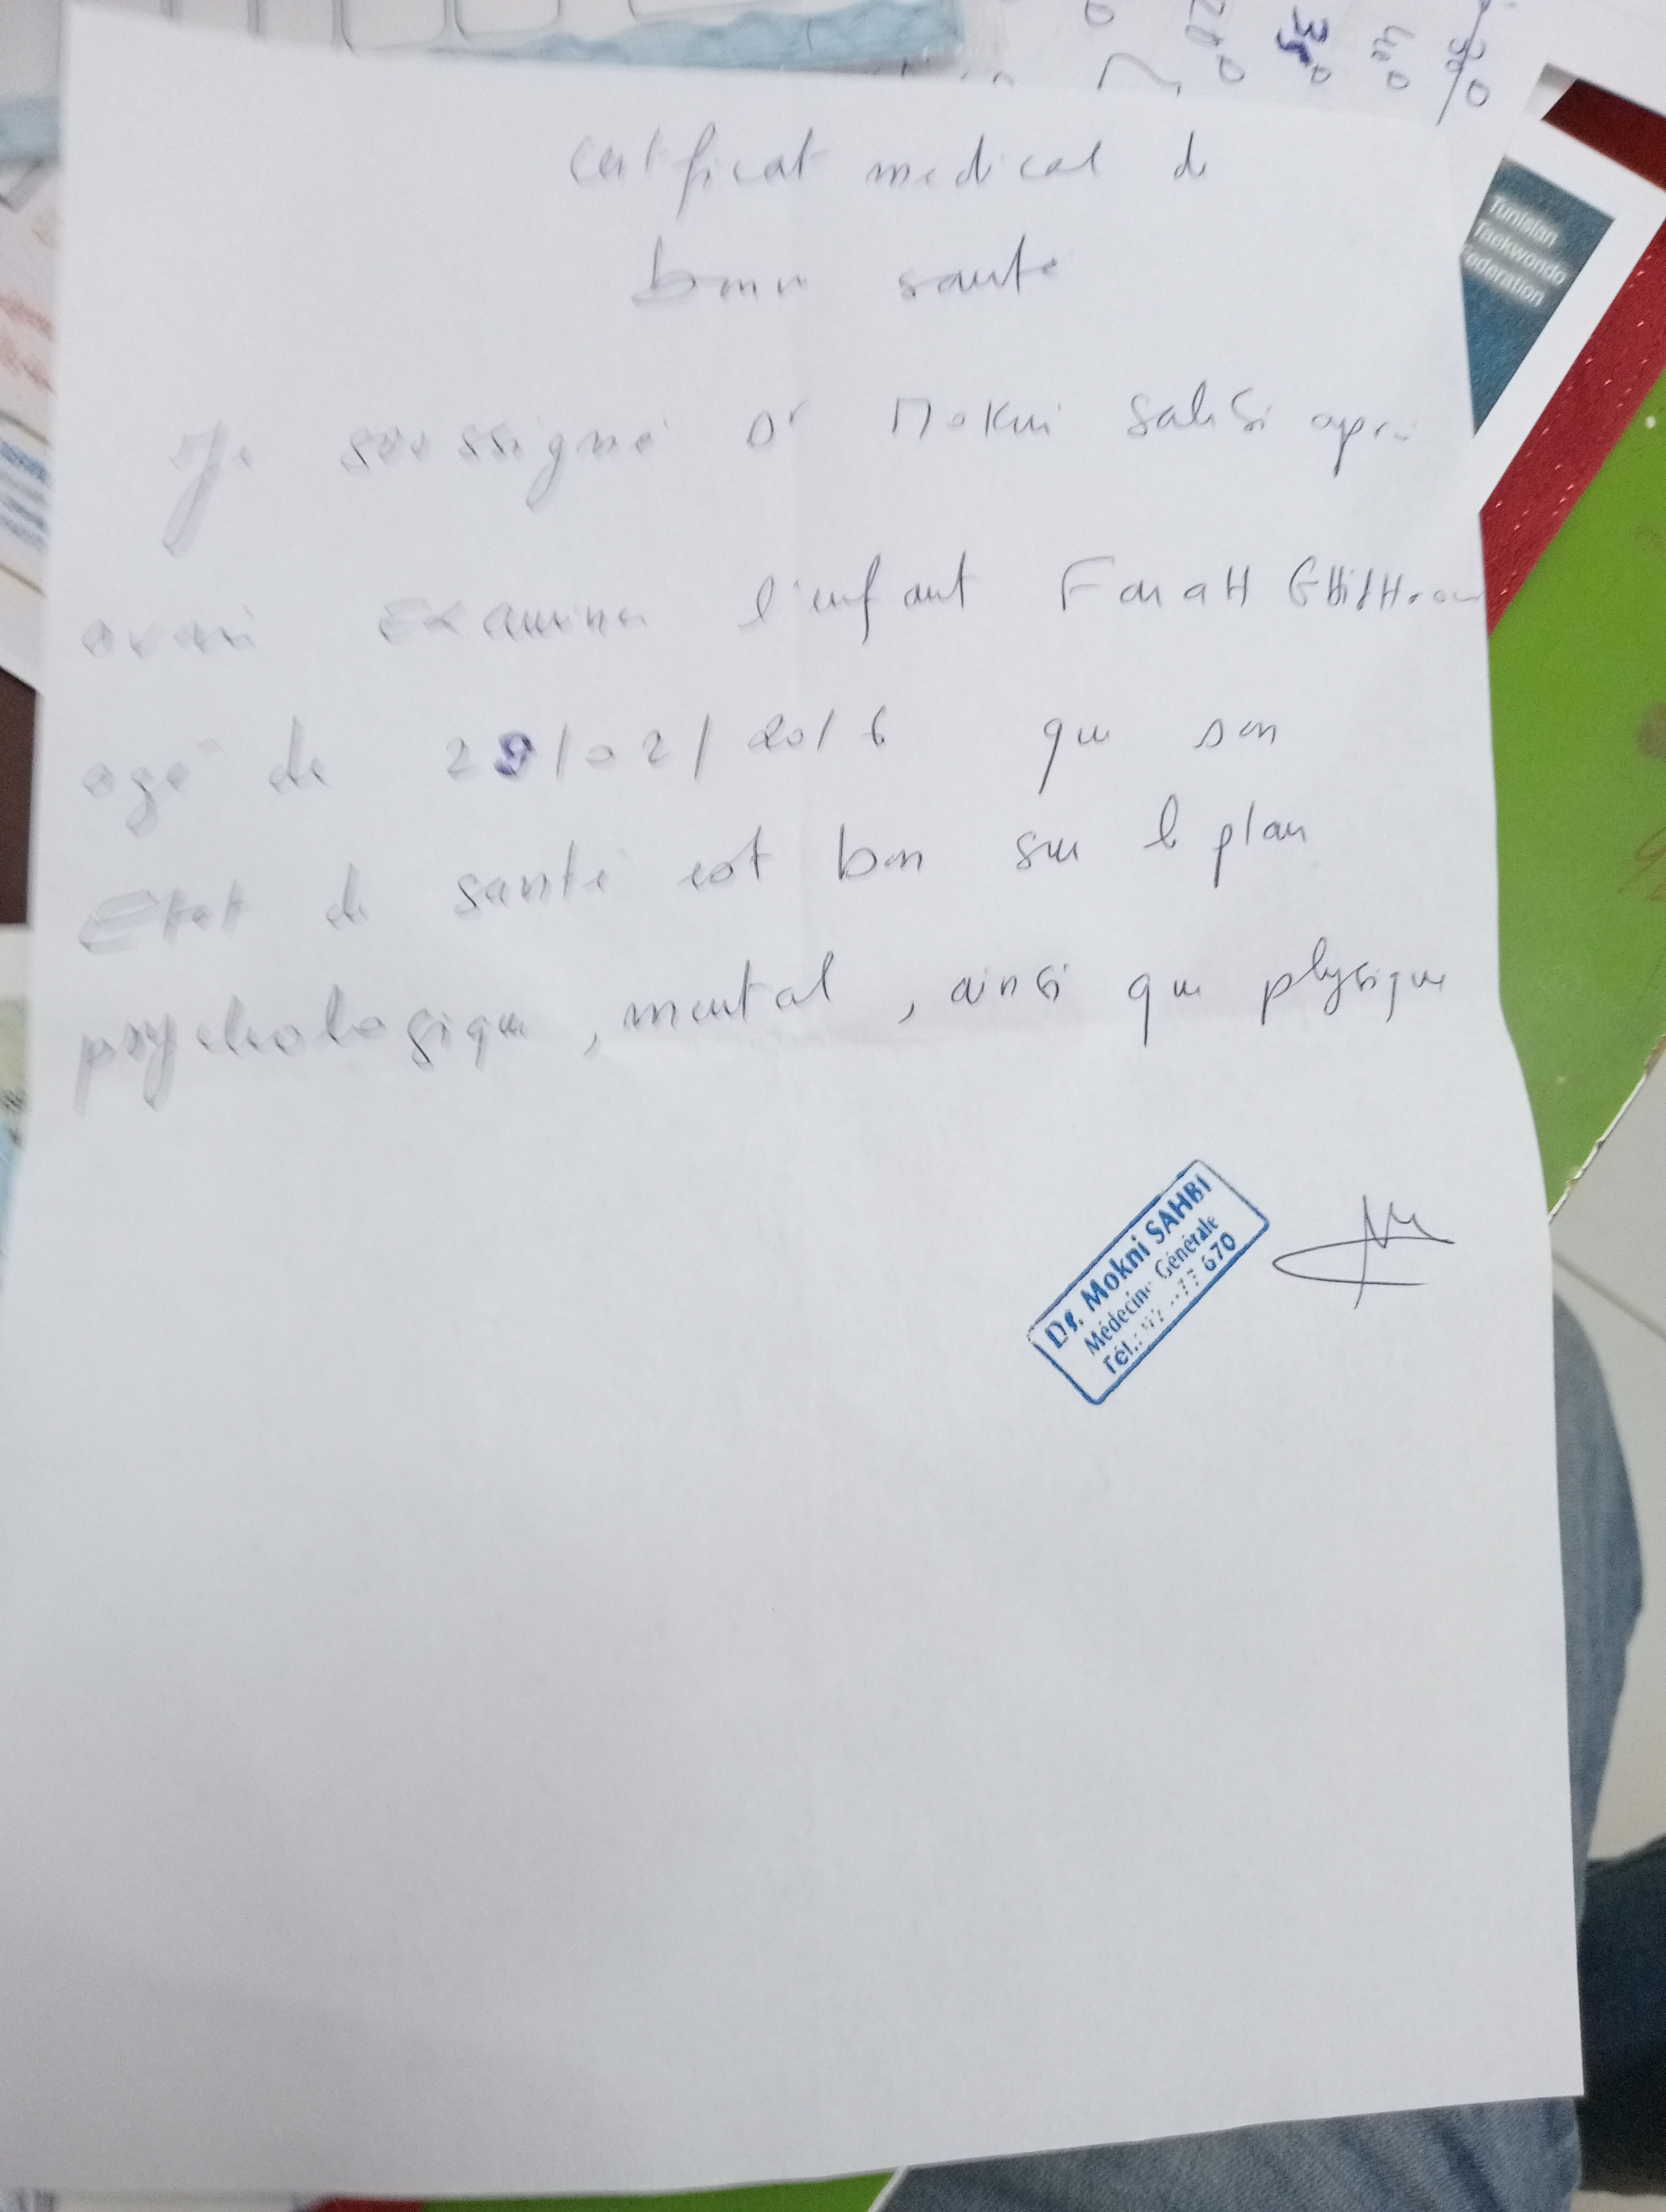 28°
35°
40°
30°
Tunisian
Taekwondo
Federation
Certificat medical de
bonne santé
Je soussigné Dr Mokni Sahbi après
avoir Examiner l'enfant Farah
agé de 29/02/2016 que son
Etat de santé est bon sur le plan
psychologique, mental, ainsi que physique
Dr. Mokni SAHBI
Médecine Générale
Tél.: 670